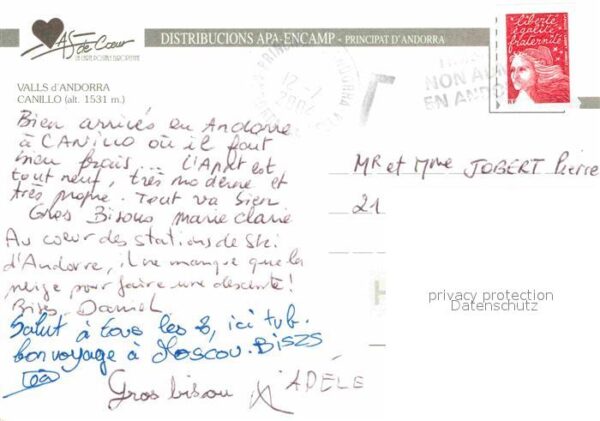 AS de Cœur
LA CARTE POSTALE EUROPÉENNE
DISTRIBUCIONS APA-ENCAMP - PRINCIPAT D'ANDORRA
liberté
égalité
fraternité
VALLS d'ANDORRA
CANILLO (alt. 1531 m.)
NON
EN ANDO
Bien arrivés en Andorre
à CANILLO où il fait
bien frais... L'Appt est
tout neuf, très moderne et
très propre. Tout va bien
Gros Bisous marie claire
Au coeur des stations de Ski
d'Andorre, il ne manque que la
neige pour faire une descente!
Bises Daniel
Salut à tous les 2, ici tvb.
bon voyage à Moscou. BISZS
Gros bisou ADÈLE
MR et Mme JOBERT Pierre
21
privacy protection
Datenschutz